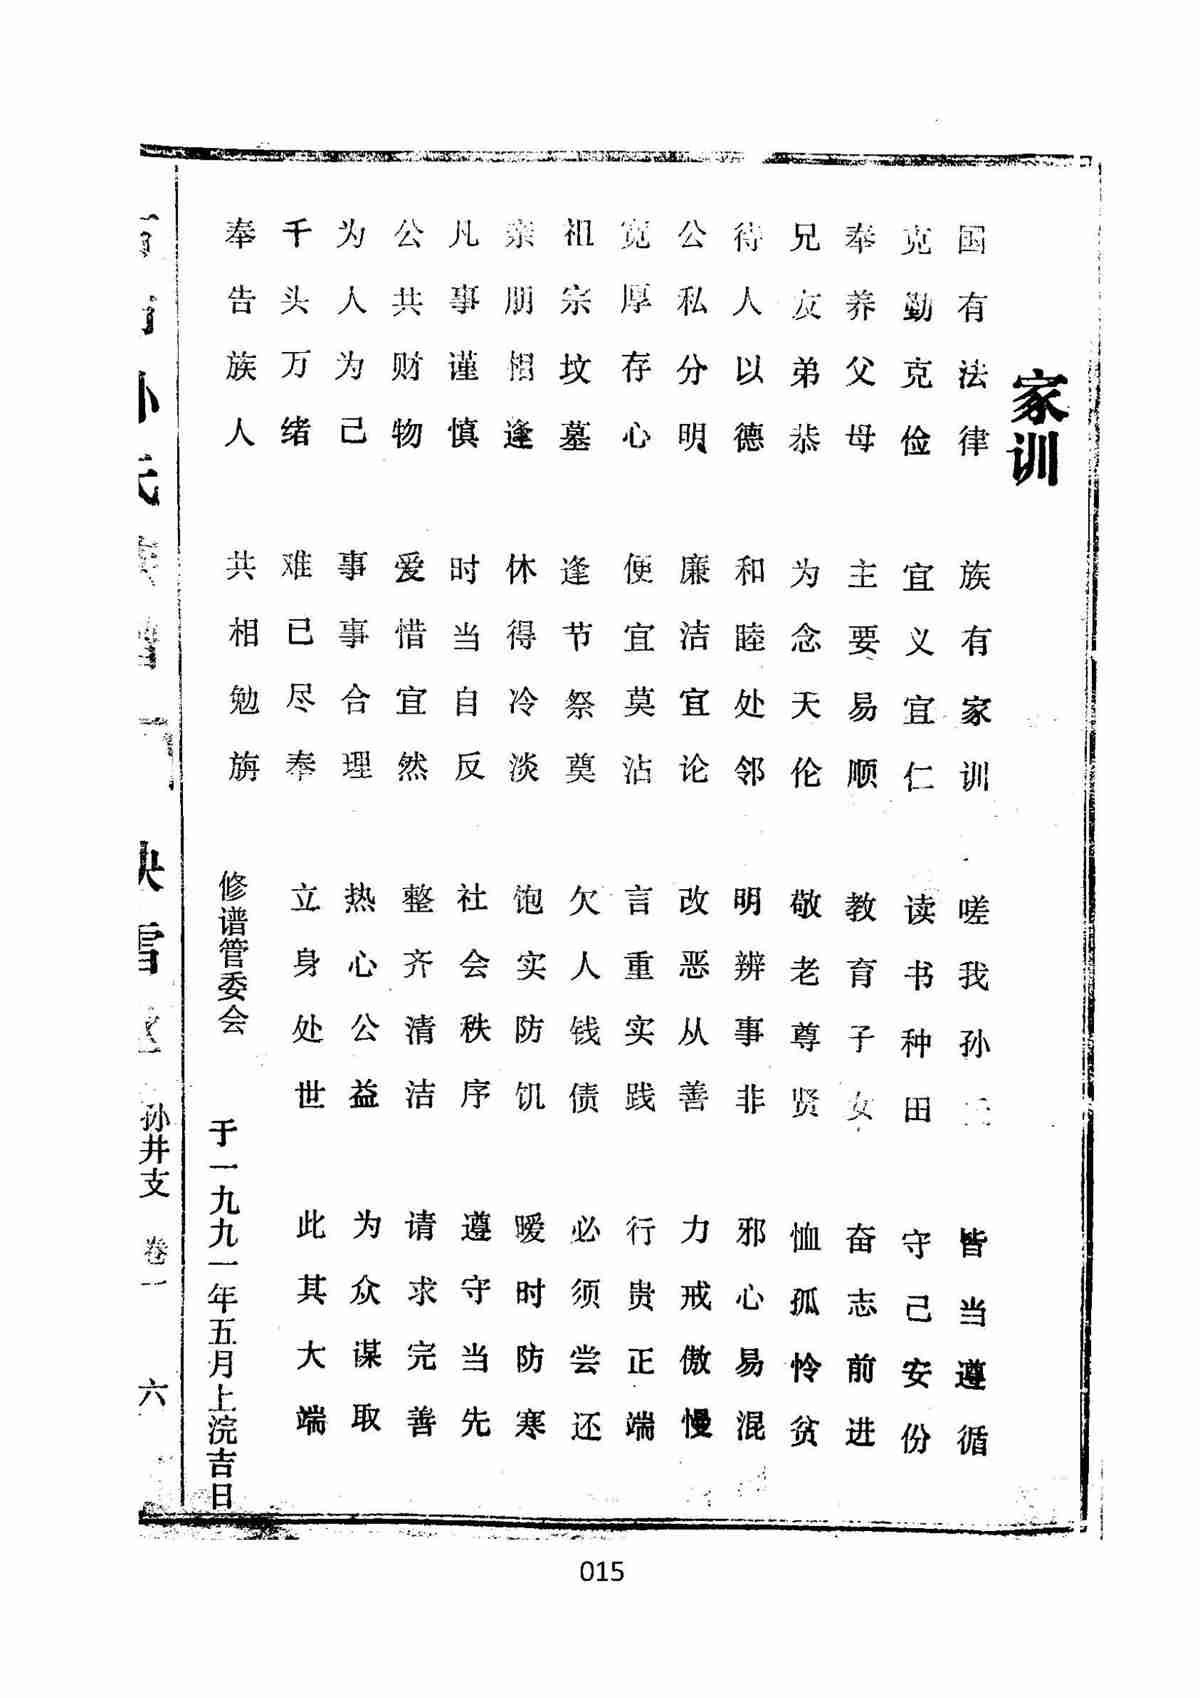 家训
国有法律 族有家训 嗟我孙氏 皆当遵循
克勤克俭 宜义宜仁 读书种田 守己安份
奉养父母 主要易顺 教育子女 奋志前进
兄友弟恭 为念天伦 敬老尊贤 恤孤怜贫
待人以德 和睦处邻 明辨事非 邪心易混
公私分明 廉洁宜论 改恶从善 力戒傲慢
宽厚存心 便宜莫沾 言重实践 行贵正端
祖宗坟墓 逢节祭奠 欠人钱债 必须尝还
亲朋相逢 休得冷淡 饱实防饥 暖时防寒
凡事谨慎 时当自反 社会秩序 遵守当先
公共财物 爱惜宜然 整齐清洁 请求完善
为人为己 事事合理 热心公益 为众谋取
千头万绪 难已尽奉 立身处世 此其大端
奉告族人 共相勉旃 修谱管委会 于一九九一年五月上浣吉日
孙氏 映雪 孙井支 卷一 六
015